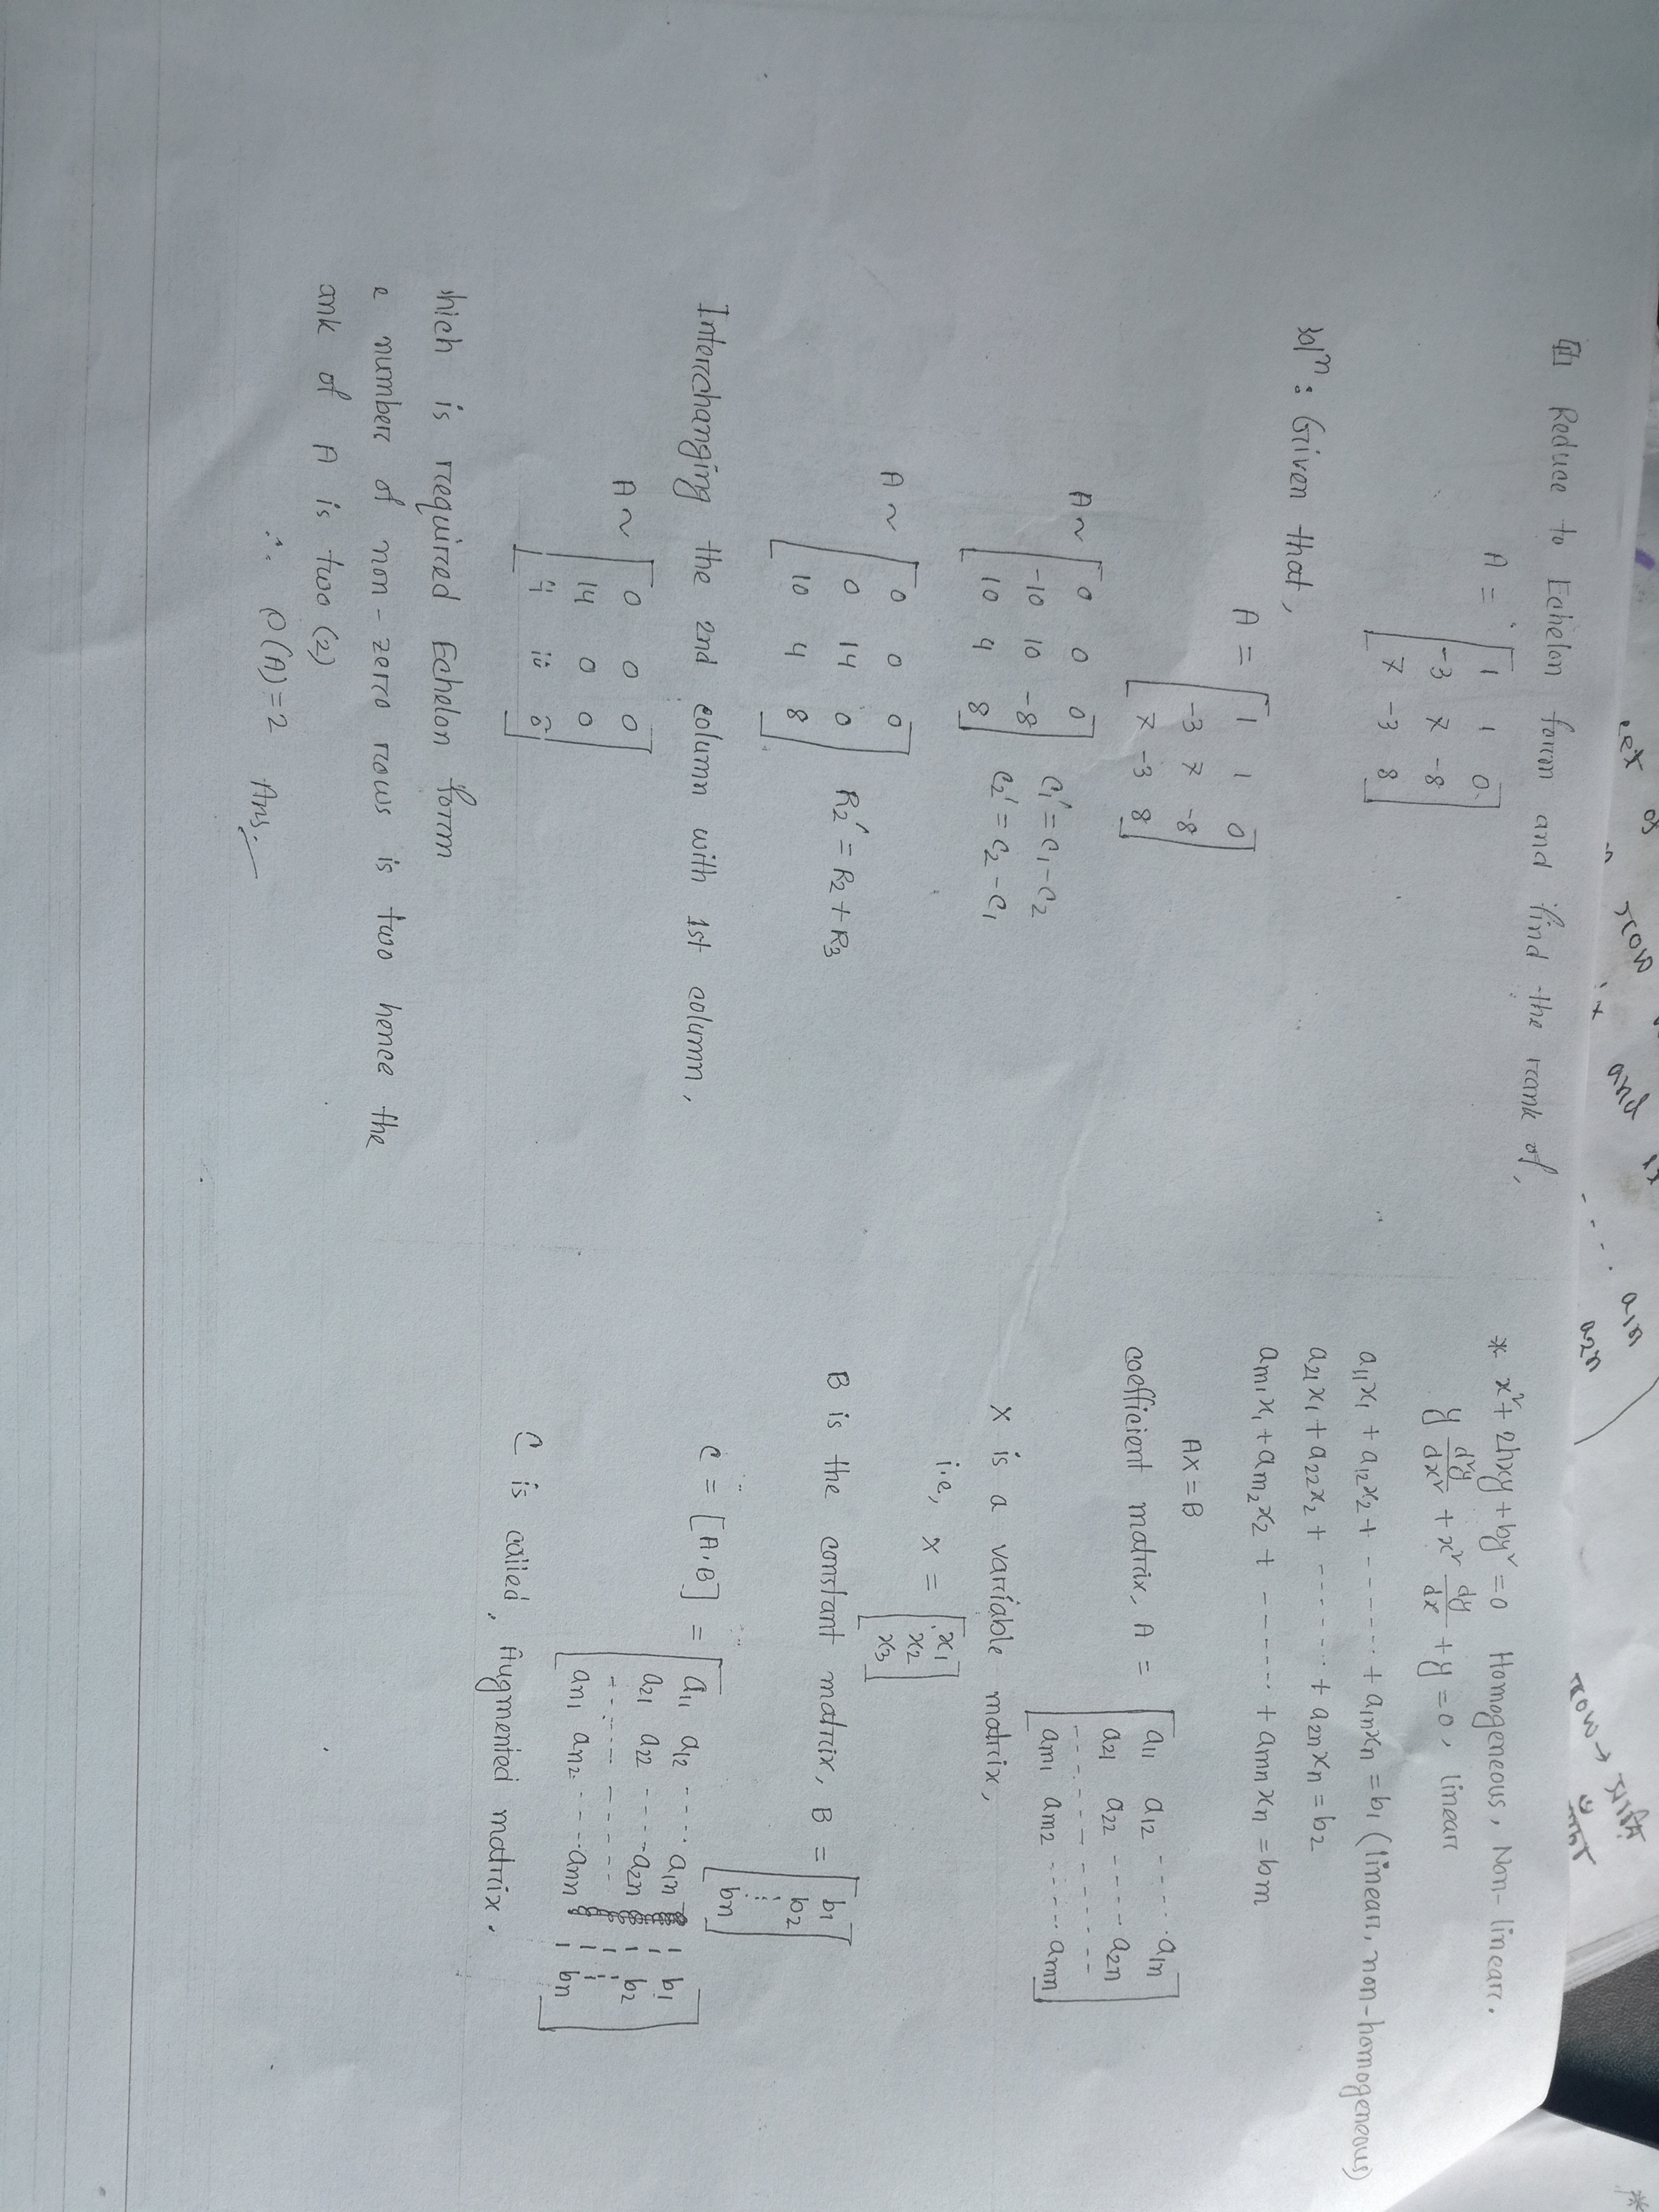 eet of
row
and
a1n
a2n
row →
Reduce to Echelon form and find the rank of,
A = [1 1 0
-3 7 -8
7 -3 8]
Solⁿ: Given that,
A = [1 1 0
-3 7 -8
7 -3 8]
A ~ [0 0 0
-10 10 -8
10 4 8] C₁' = C₁ - C₂
C₂' = C₂ - C₁
A ~ [0 0 0
0 14 0
10 4 8] R₂' = R₂ + R₃
Interchanging the 2nd column with 1st column,
A ~ [0 0 0
14 0 0
4 10 8]
hich is required Echelon form
e number of non-zero rows is two hence the
ank of A is two (2)
∴ ρ(A) = 2 Ans.
* x² + 2hxy + by² = 0 Homogeneous, Non-linear.
y d²y/dx² + x² dy/dx + y = 0, linear
a11x1 + a12x2 + ------ + a1nxn = b1 (linear, non-homogeneous)
a21x1 + a22x2 + ------ + a2nxn = b2
am1x1 + am2x2 + ------ + amnxn = bm
AX = B
coefficient matrix, A = [a11 a12 ----- a1n
a21 a22 ---- a2n
------------
am1 am2 ----- amn]
X is a variable matrix,
i.e, X = [x1
x2
x3]
B is the constant matrix, B = [b1
b2
⋮
bn]
C = [A.B] = [a11 a12 ---- a1n | b1
a21 a22 ---- a2n | b2
------------ | ⋮
an1 an2 ---- ann | bn]
C is called, Augmented matrix.